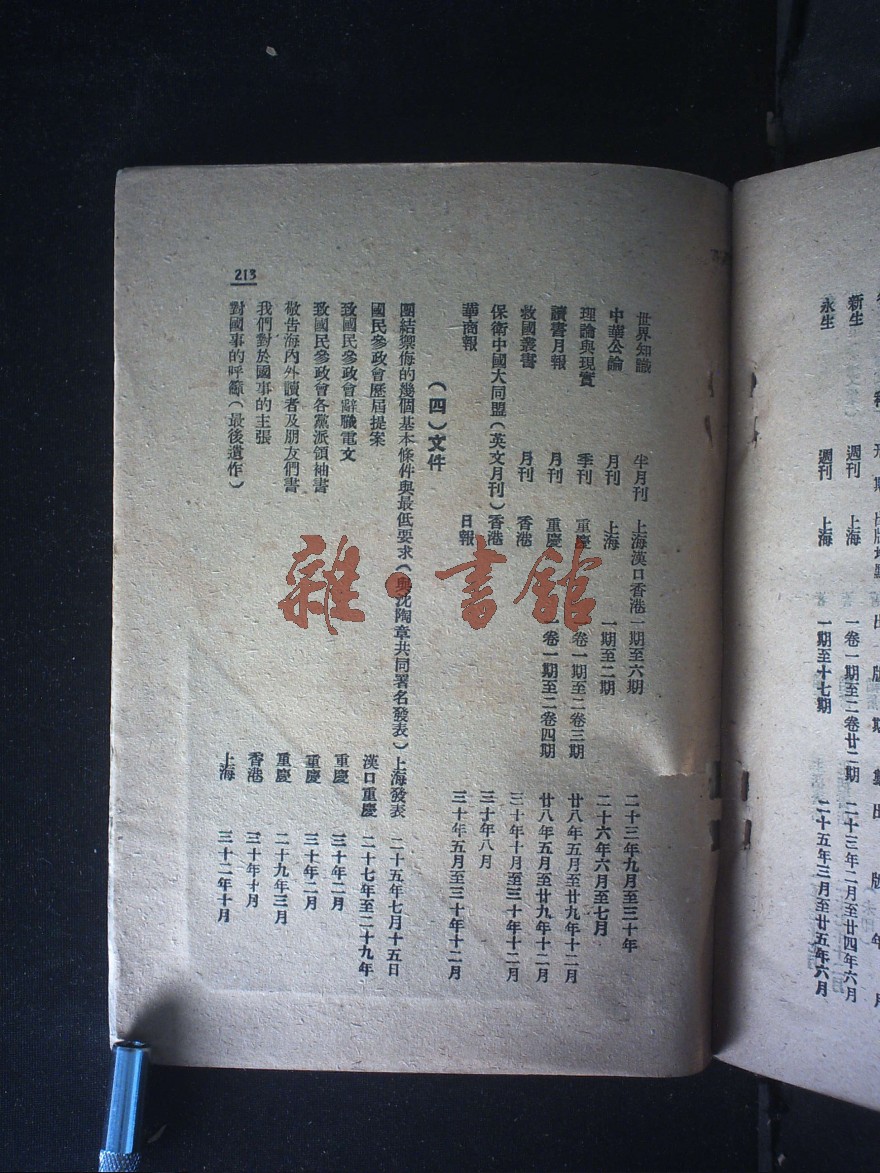 新生 週刊 上海 一卷一期至二卷廿二期 二十三年二月至廿四年六月
永生 週刊 上海 一期至十七期 二十五年三月至廿五年六月
世界知識 半月刊 上海漢口香港 一期至六期 二十三年九月至三十年
中華公論 月刊 上海 一期至二期 二十六年六月至七月
理論與現實 季刊 重慶 一卷一期至二卷三期 廿八年五月至廿九年十二月
讀書月報 月刊 重慶 一卷一期至二卷四期 廿八年五月至廿九年十二月
救國叢書 月刊 香港 三十年十月至三十年十二月
保衛中國大同盟(英文月刊)香港 三十年八月
華商報 日報 三十年五月至三十年十二月
(四)文件
團結禦侮的幾個基本條件與最低要求(與沈陶章共同署名發表)上海發表 二十五年七月十五日
國民參政會歷屆提案 漢口重慶 二十七年至二十九年
致國民參政會辭職電文 重慶 三十年二月
致國民參政會各黨派領袖書 重慶 三十年二月
敬告海內外讀者及朋友們書 重慶 二十九年三月
我們對於國事的主張 香港 三十年十月
對國事的呼籲(最後遺作) 上海 三十二年十月
213
雜·書館